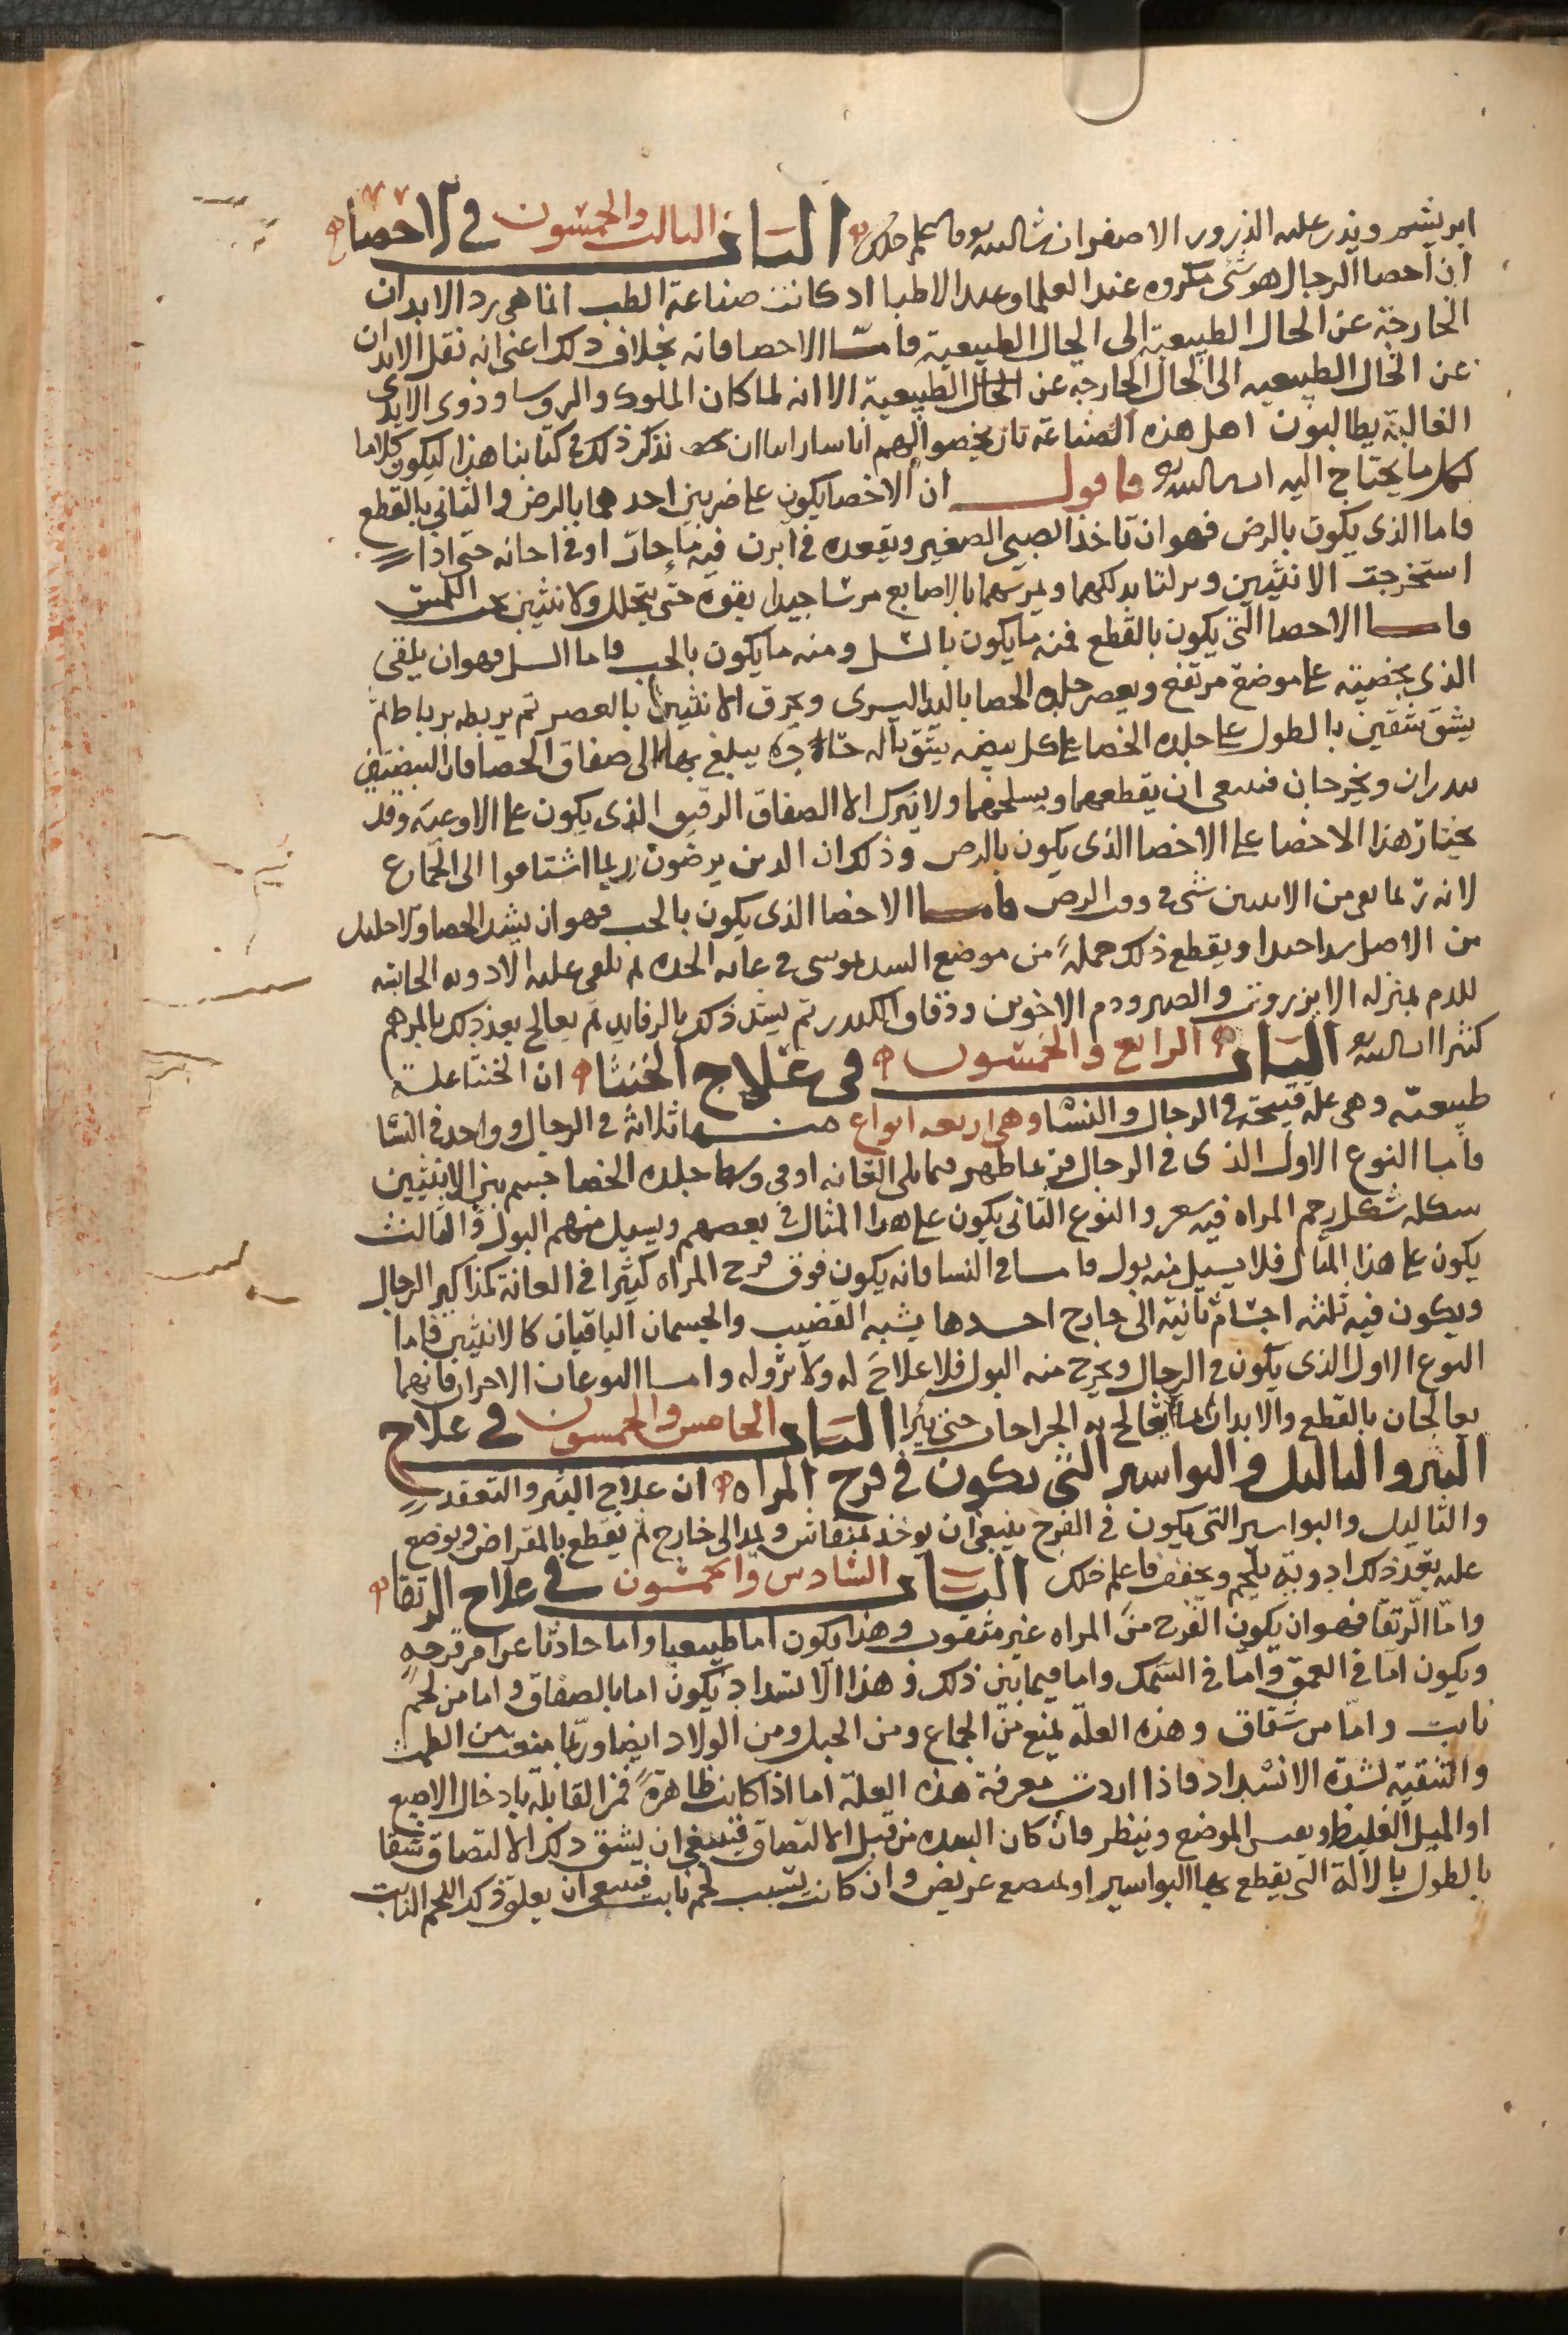 ابريشم ويذر عليه الذرور الاصفر ان شاالله فاعلم ذلك الباب الثالث والخمسون في الاخصا
ان اخصا الرجال هو شى مكروه عند العلما وعند الاطبا اذ كانت صناعة الطب انما هى رد الابدان
الخارجة عن الحال الطبيعية الى الحال الطبيعية فاما الاخصا فانه بخلاف ذلك اعنى انه نقل الابدان
عن الحال الطبيعيه الى الحال الخارجه عن الحال الطبيعية الا انه لما كان الملوك والروسا وذوى الايدى
الغالبة يطالبون اهل هذه الصناعة بان يخصوا لهم اناسا راينا ان نذكر ذلك في كتابنا هذا ليكون كلاما
لكل ما يحتاج اليه ان شاالله فاقول ان الاخصا يكون على ضربين احدهما بالرض والثاني بالقطع
فاما الذى يكون بالرض فهو ان تاخذ الصبي الصغير ويقعده في ابزن فيه ما حار او في اجانه حتى اذا
استخرجت الانثيين وبرلتا يدلكهما ويمرسهما بالاصابع مرسا جيدا بقوة حتى يتحلل ولا تتبين عند اللمس
فاما الاخصا الذي يكون بالقطع فمنه ما يكون بالسل ومنه ما يكون بالجب فاما السل فهو ان يلقى
الذى يخصيه على موضع مرتفع ويعصر جلده الخصا باليد اليسرى ويحرق الانثيين بالعصر ثم يربطه برباط ثم
يشق شقين بالطول على جلده الخصا على كل بيضه يشق باله حاده يبلغ بها الى صفاق الخصا فان البيضتين
يبدران ويخرجان فينبغى ان يقطعهما ويسلخهما ولا يترك الا الصفاق الرقيق الذى يكون على الاوعيه وقد
يختار هذا الاخصا على الاخصا الذى يكون بالرض وذلك ان الذين يرضون ربما اشتاقوا الى الجماع
لانه ربما بقى من الانثيين شى في وقت الرض فاما الاخصا الذى يكون بالجب فهو ان يشد الخصا والاحليل
من الاصل شدا جيدا ويقطع ذلك جملة من موضع الشد بموسى في غايه الحده ثم يلقى عليه الادويه الحابسه
للدم بمنزله الانزروت والصبر ودم الاخوين ودقاق الكندر ثم يشد ذلك بالرفايد ثم يعالج بعد ذلك بالمرهم
كثيرا ان شاالله الباب الرابع والخمسون في علاج الخنثا ان الخنثا علة
طبيعيه وهى علة قبيحة في الرجال والنسا وهى اربعه انواع منها ثلاثة في الرجال وواحد في النسا
فاما النوع الاول الذى في الرجال فربما ظهر مما يلى العانه او في وسط جلده الخصا جسم بين الانثيين
شكله شكل رحم المراه فيه شعر والنوع الثانى يكون على هذا المثال في بعضهم ويسيل منهم البول والثالث
يكون على هذا المثال فلا يسيل منه بول فاما في النسا فانه يكون فوق فرج المراه كثيرا في العانة كمذاكير الرجال
ويكون فيه ثلثه اجسام ناتيه الى خارج احدها يشبه القضيب والجسمان الباقيان كالانثيين فاما
النوع الاول الذى يكون في الرجال ويخرج منه البول فلا علاج له ولا بروله واما النوعان الاخران فانهما
يعالجان بالقطع والابدان بما يعالج به الجراحات حتى تبرا الباب الخامس والخمسون في علاج
البثر والثاليل والبواسير التى تكون في فرج المراه ان علاج البثر والتعقد
والثاليل والبواسير التى يكون في الفرج ينبغى ان يوخذ بمنقاش ويمد الى خارج ثم يقطع بالمقراض ويوضع
عليه بعد ذلك ادوية يلحم ويجفف فاعلم ذلك الباب السادس والخمسون في علاج الرتقا
واما الرتقا فهو ان يكون الفرج من المراه غير مثقوب وهذا يكون اما طبيعيا واما حادثا عن امر قرحه
ويكون اما في العمق واما في السمك واما فيما بين ذلك و هذا الانسداد يكون اما بالصفاق واما من لحم
نابت واما من شقاق وهذه العلة يمنع من الجماع ومن الحبل ومن الولاد ايضا وربما منعت من الطمث
والتنقية لشدة الانسداد فاذا اردت معرفة هذه العلة اما اذا كانت ظاهرة فمن القابلة بادخال الاصبع
او الميل الغليظ ويفتش الموضع وينظر فان كان السده من قبل الالتصاق فينبغى ان يشق ذلك الالتصاق شقا
بالطول بالالة التى يقطع بها البواسير او بمبضع عريض وان كانت بسبب لحم نابت فينبغى ان يعلق ذلك اللحم النابت